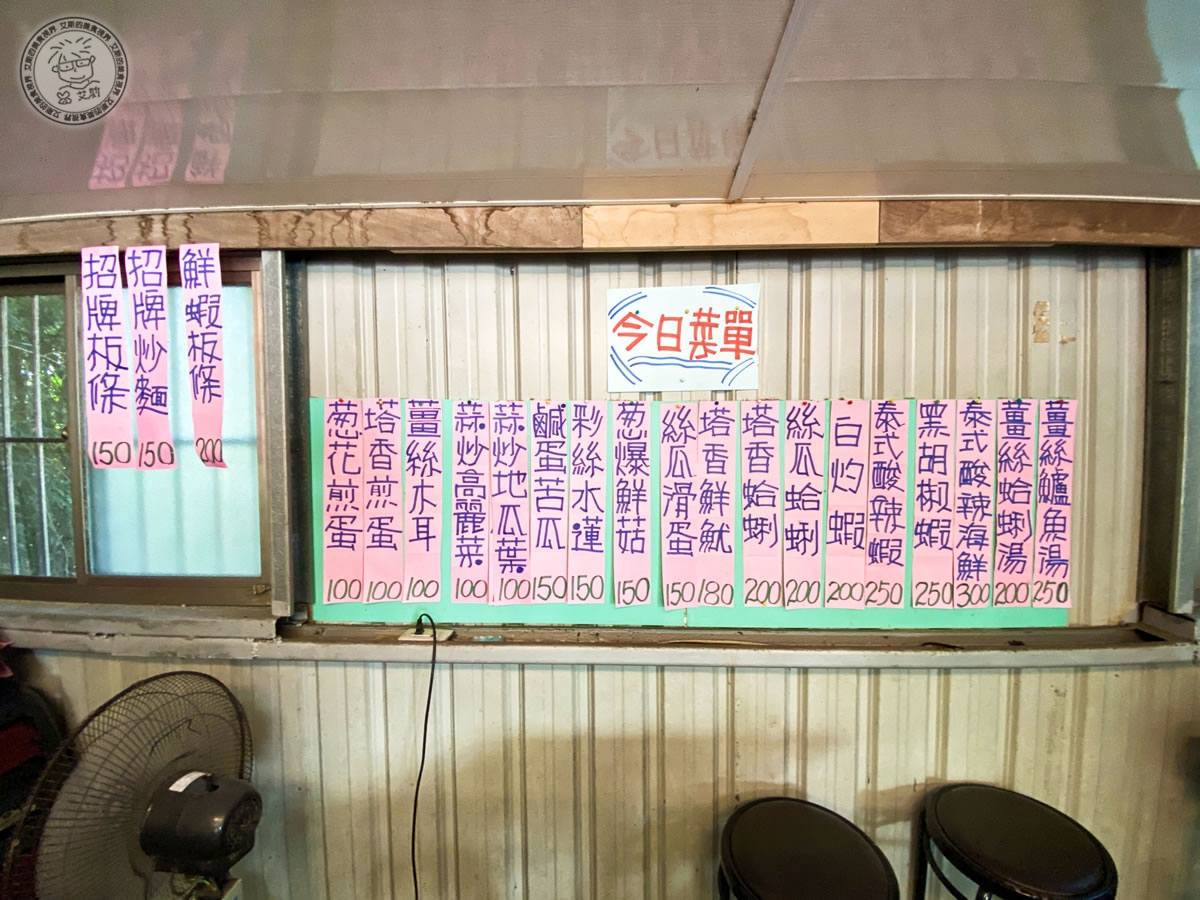 艾斯的美食視界
艾斯
今日菜單
招牌板條 150
招牌炒麵 150
鮮蝦板條 200
葱花煎蛋 100
塔香煎蛋 100
薑絲木耳 100
蒜炒高麗菜 100
蒜炒地瓜葉 100
鹹蛋苦瓜 150
彩絲水蓮 150
葱爆鮮菇 150
絲瓜滑蛋 150
塔香鮮魷 180
塔香蛤蜊 200
絲瓜蛤蜊 200
白灼蝦 200
泰式酸辣蝦 250
黑胡椒蝦 250
泰式酸辣海鮮 300
薑絲蛤蜊湯 200
薑絲鱸魚湯 250